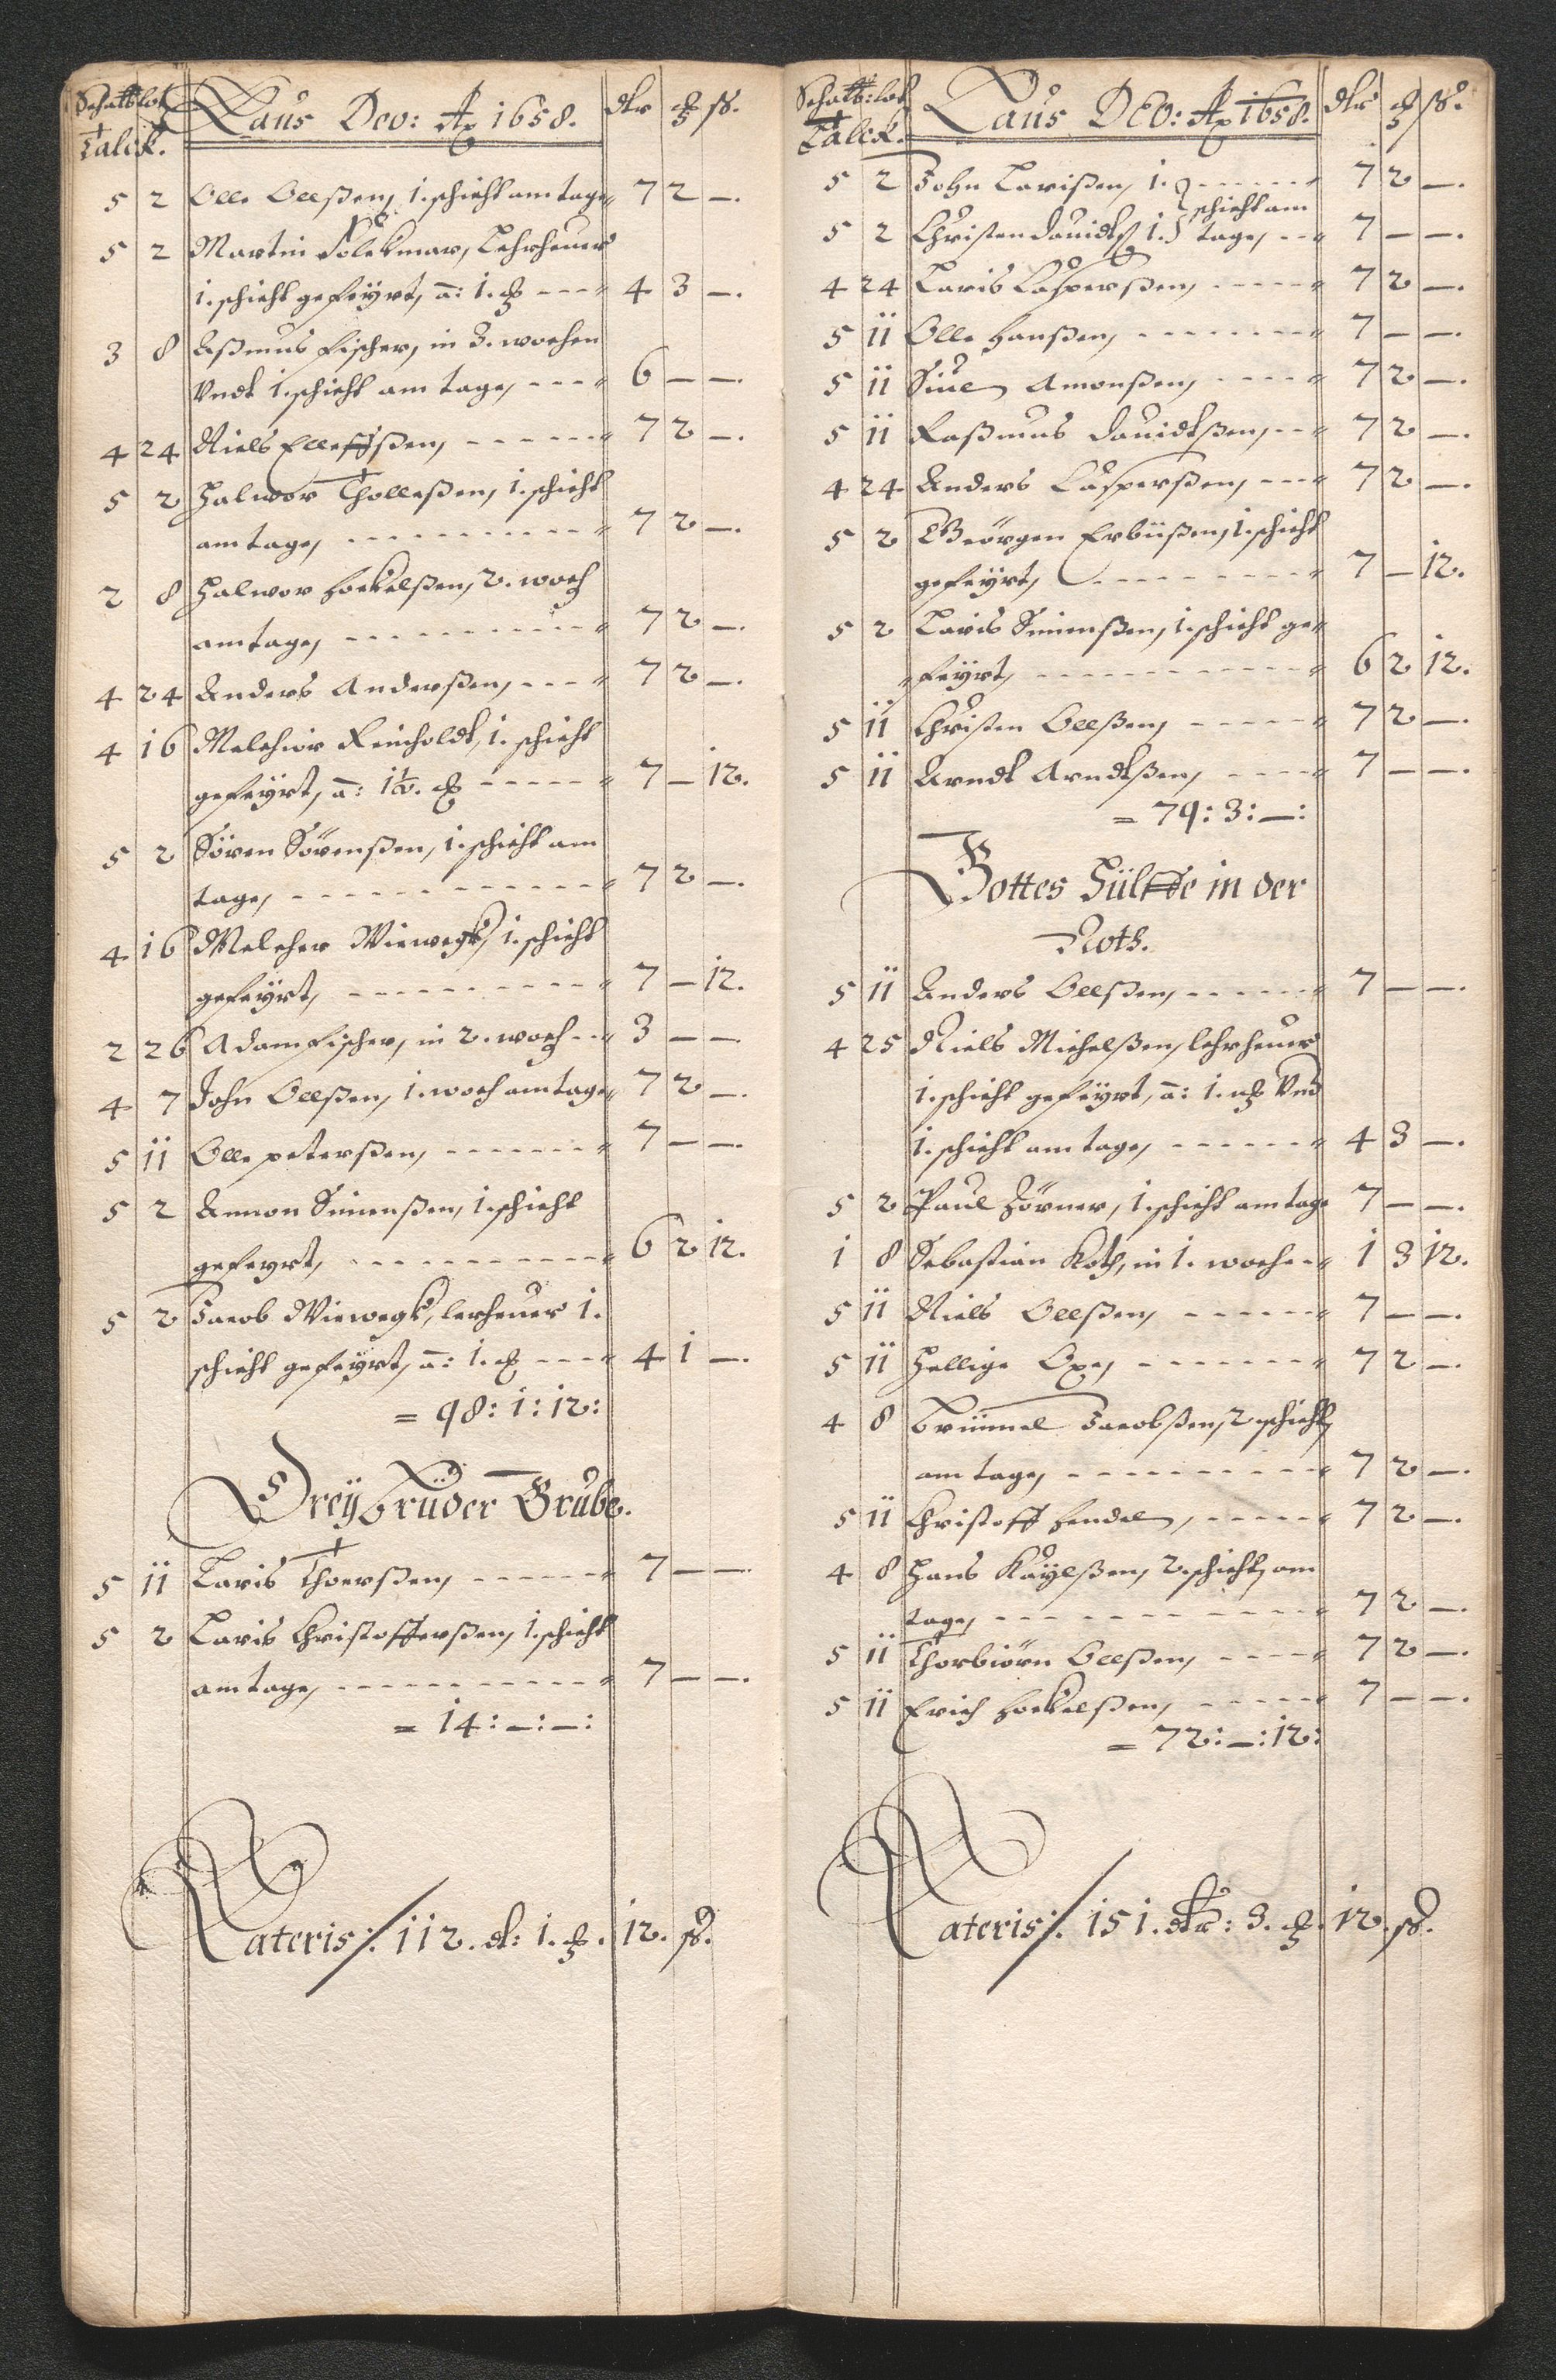 Schatt: lot
Talck.
Laus Deo: Ao 1658. dlr ß.
5 2 Olle Olleßen, 1. schicht am tage 7 2 —.
5 2 Martin Lehrheuer
1. schicht gefeÿrt, a: 1. 4 3 —.
3 8 Aßmus Fischer, in 3. wochen
Vndt 1. schicht am tage, 6 — —.
4 24 Niels Elleffßen, 7 2 —.
5 2 Halwor Tholleßen, 1. schicht
am tage, 7 2 —.
2 8 Halwor Hoekelßen, 2. woch
am tage, 7 2 —.
4 24 Anders Anderßen, 7 2 —.
4 16 Melchior Reincholdt, 1. schicht
gefeÿrt, a: 1½. 7 — 12.
5 2 Sören Sörenßen, 1. schicht am
tage, 7 2 —.
4 16 Melcher Viewegk, 1. schicht
gefeÿrt, 7 — 12.
2 26 Adam Fischer, in 2. woch 3 — —
4 7 John Olleßen, 1. woch am tage 7 2 —.
5 11 Olle peterßen, 7 — —.
5 2 Amon Simenßen, 1. schicht
gefeyrt, 6 2 12.
5 2 Jacob Viewegk, lerheuer 1.
schicht gefeÿrt, a: 1. 4 1 —.
= 98: 1: 12:
Dreÿ brüder Grube.
5 11 Laris Thoerßen, 7 — —
5 2 Laris Christofferßen, 1. schicht
am tage, 7 — —.
= 14: —: —:
Lateris:/. 112. d: 1. 12. ß.
Schatt: lot
Talck.
Laus DEO: Ao 1658. dlr ß.
5 2 John Larißen, 1. 7 2 —.
schicht am
5 2 Christen Dauidtß 1. tage, 7 — —.
4 24 Laris Casperßen, 7 2 —.
5 11 Olle Hanßen, 7 — —.
5 11 Siuel Amonßen, 7 2 —.
5 11 Raßmus Dauidtßen, 7 2 —.
4 24 Anders Casperßen, 7 2 —.
5 2 Geörgen Erbiißen, 1. schicht
gefeÿrt, 7 — 12.
5 2 Laris Simenßen, 1. schicht ge
feyrt, 6 2 12.
5 11 Christen Olleßen, 7 2 —.
5 11 Arndt Arndtßen, 7 — —.
= 79: 3: —:
Gottes Hülffe in der
Noth.
5 11 Anders Olleßen, 7 — —.
4 25 Niels Michelßen, lehrheuer
1. schicht gefeÿrt, a: 1. Vnd
1. schicht am tage, 4 3 —.
5 2 Paul Hörner, 1. schicht am tage 7 — —.
1 8 Sebastian Koth, in 1. wochen 1 3 12.
5 11 Niels Olleßen, 7 — —.
5 11 Hellige Oxe, 7 2 —.
4 8 Brümmel Jacobßen, 2 schicht
am tage, 7 2 —.
5 11 Christoff Hendel, 7 2 —.
4 8 Hans Kaÿlßen, 2. schicht am
tage, 7 2 —.
5 11 Thorbiörn Olleßen, 7 2 —.
5 11 Erich Hoekelßen, 7 — —.
= 72: —: 12:
Lateris:/. 151. dlr: 3. 12. ß.